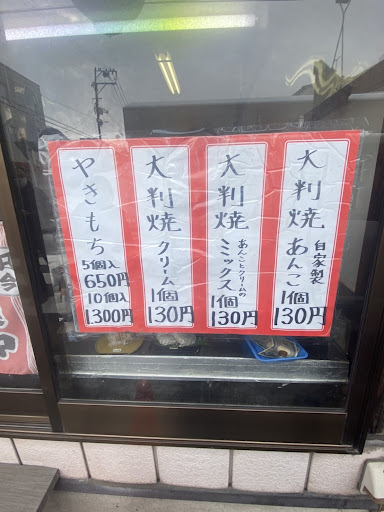 自家製
大判焼 あんこ 1個 130円
大判焼 あんことクリームの
ミックス 1個 130円
大判焼 クリーム 1個 130円
やきもち
5個入
650円
10個入
1300円